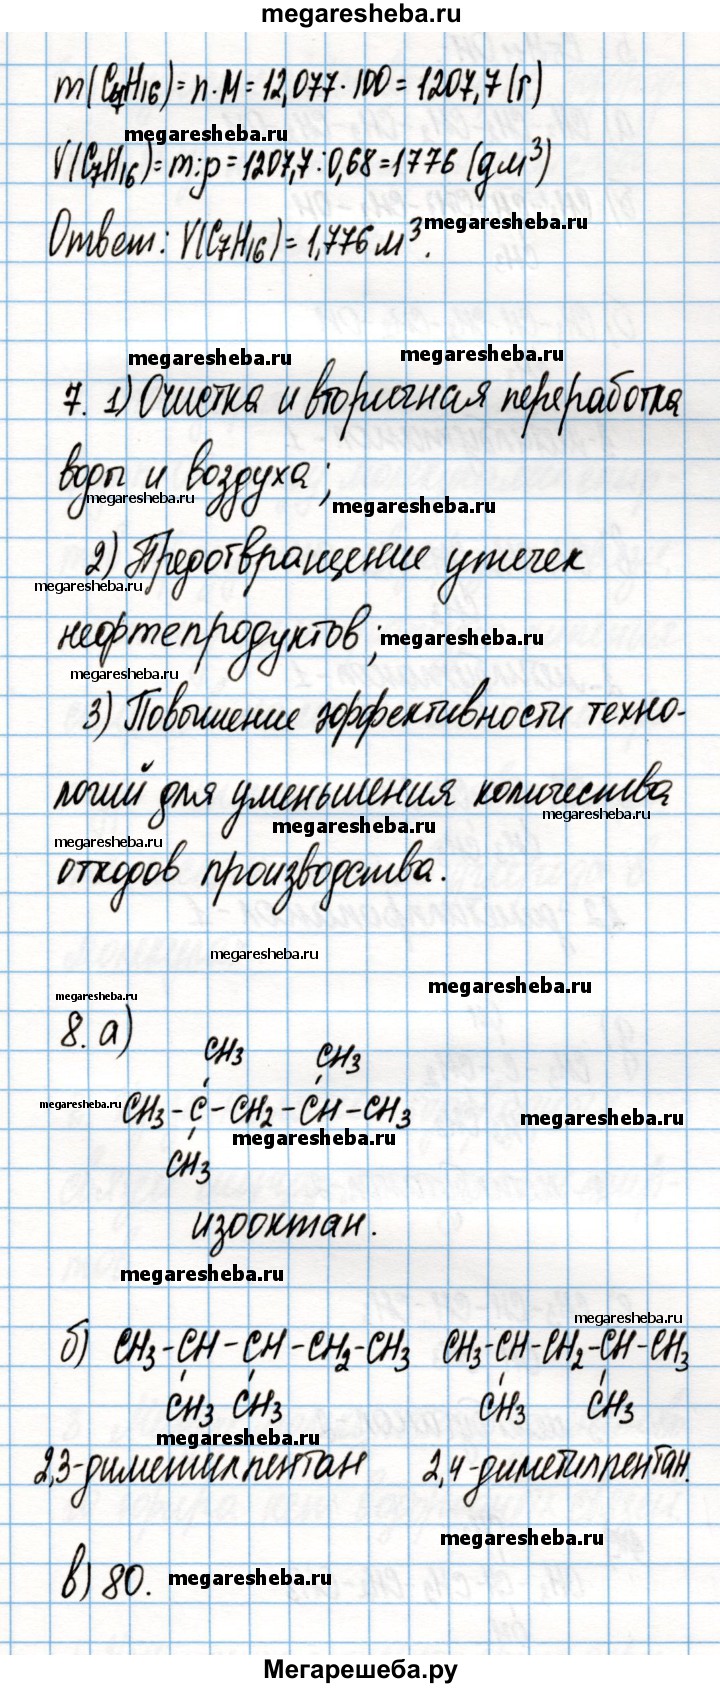 megaresheba.ru
m(C₇H₁₆) = n·M = 12,077·100 = 1207,7 (г)
megaresheba.ru
V(C₇H₁₆) = m:ρ = 1207,7:0,68 = 1776 (дм³)
megaresheba.ru
Ответ: V(C₇H₁₆) = 1,776 м³.
megaresheba.ru megaresheba.ru
7. 1) Очистка и вторичная переработка
воды и воздуха;
megaresheba.ru megaresheba.ru
2) Предотвращение утечек
megaresheba.ru
нефтепродуктов; megaresheba.ru
megaresheba.ru
3) Повышение эффективности техно-
логий для уменьшения количества
megaresheba.ru megaresheba.ru
megaresheba.ru
отходов производства.
megaresheba.ru
megaresheba.ru
megaresheba.ru
8. а)
CH₃ CH₃
megaresheba.ru CH₃-C-CH₂-CH-CH₃ megaresheba.ru
megaresheba.ru
CH₃
изооктан.
megaresheba.ru
megaresheba.ru
б) CH₃-CH-CH-CH₂-CH₃ CH₃-CH-CH₂-CH-CH₃
CH₃ CH₃ CH₃ CH₃
megaresheba.ru
2,3-диметилпентан 2,4-диметилпентан.
megaresheba.ru
в) 80. megaresheba.ru
Мегарешеба.ру